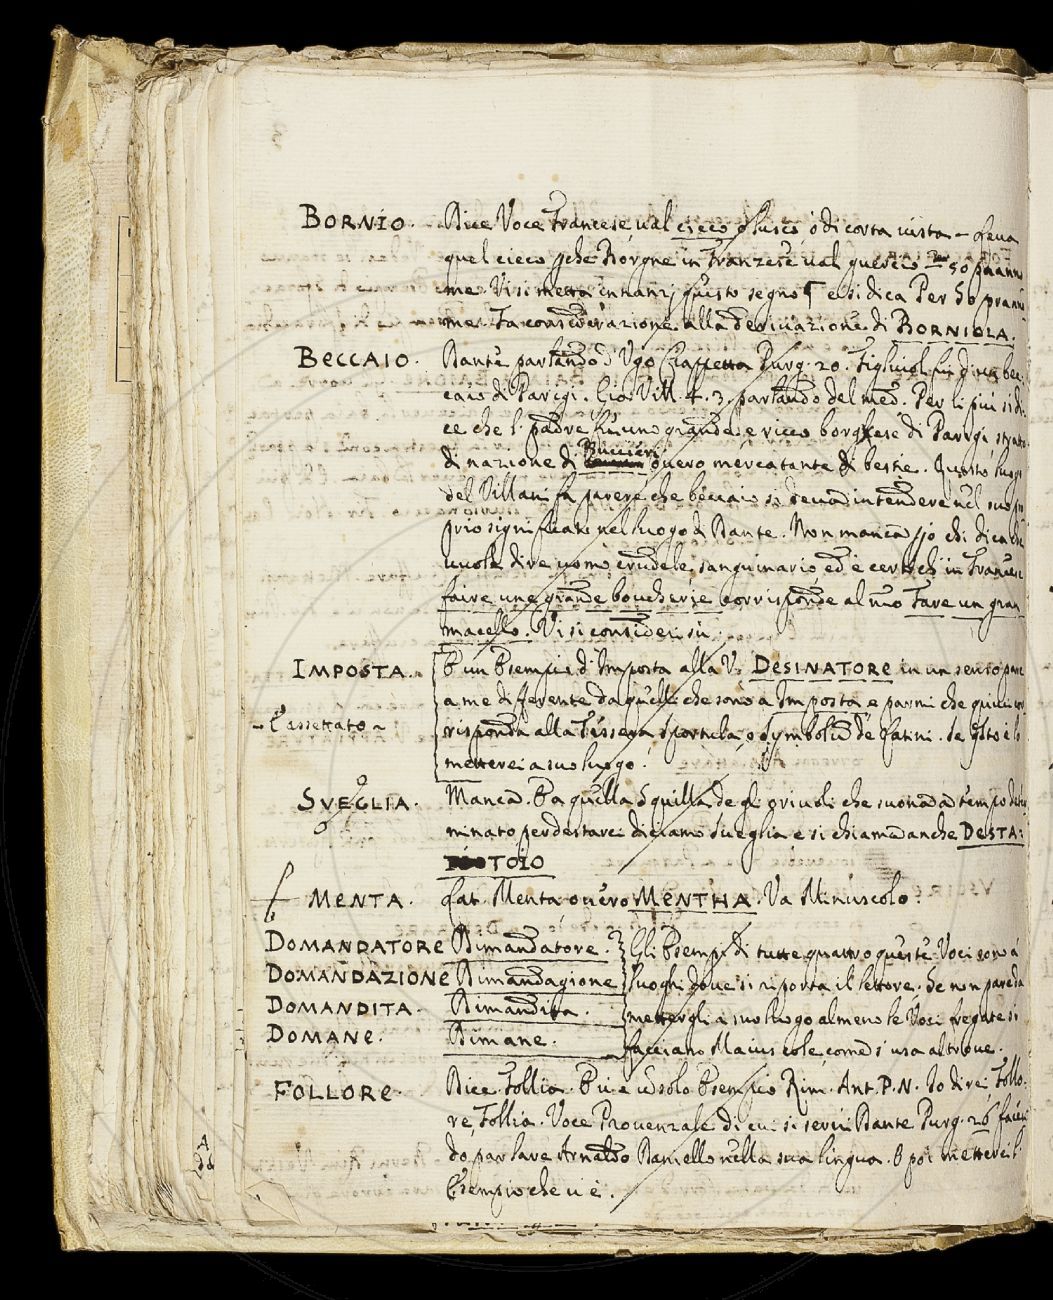 BORNIO. Dice Voce Francese, val cieco, o lusco, o di corta vista – Leva
quel cieco, che Borgne in Franzese val guercio
me. Vi si metta innanzi questo segno ¶ e si dica Per So pranno
me. Fa considerazione alla derivazione di BORNIOLA.
BECCAIO. Dante parlando d'Ugo Ciappetta Purg. 20. Figliuol fui d'un bec:
caio di Parigi. Gio: Vill. 4. 3. parlando del med. Per li più si di:
ce che l' padre fu uno grande e ricco borghese di Parigi stratto
di nazione di Buccieri overo mercatante di bestie. Questo luogo
del Villani fa parere che beccaio si deva intendere nel suo pro
prio significato nel luogo di Dante. Non manca però chi dica che
vuola dire uomo crudele sanguinario, ed è certo ch' in Francese
faire une grande boucherie corrisponde al nro Fare un gran
macello. Vi si consideri su.
IMPOSTA. È un Esempio d'Imposta alla V. DESINATORE in un senso pare
a me differente da quelli che sono a Imposta, e parmi che quivi cor
– È assettato – risponda alla Tessera sportula, o symbolum de Latini. Se q̃sto è lo
metterei a suo luogo.
SVEGLIA. Manca. E a quella Squilla de gli orivoli che suona a tempo deter
minato per destarci diciamo Sveglia e si chiama anche DESTA:
TOIO
MENTA. Lat. Menta overo MENTHA. Va Minuscolo.
DOMANDATORE Dimandatore. Gli Esempi di tutte quattro queste Voci sono à
DOMANDAZIONE Dimandagione luoghi dove si riporta il lettore. Se non pare da
DOMANDITA. Dimandita. mettergli a suo luogo almeno le Voci fregate si
DOMANE. Dimane. facciano Maiuscole, come s'usa altrove.
FOLLORE. Dice Follia. E vi è un solo Esempio Rim. Ant. P. N. Io direi Follo:
re, Follia. Voce Provenzale di cui si servì Dante Purg. 26 facen
do parlare Arnaldo Daniello nella sua lingua. E poi metterei l'
Esempio che vi è.